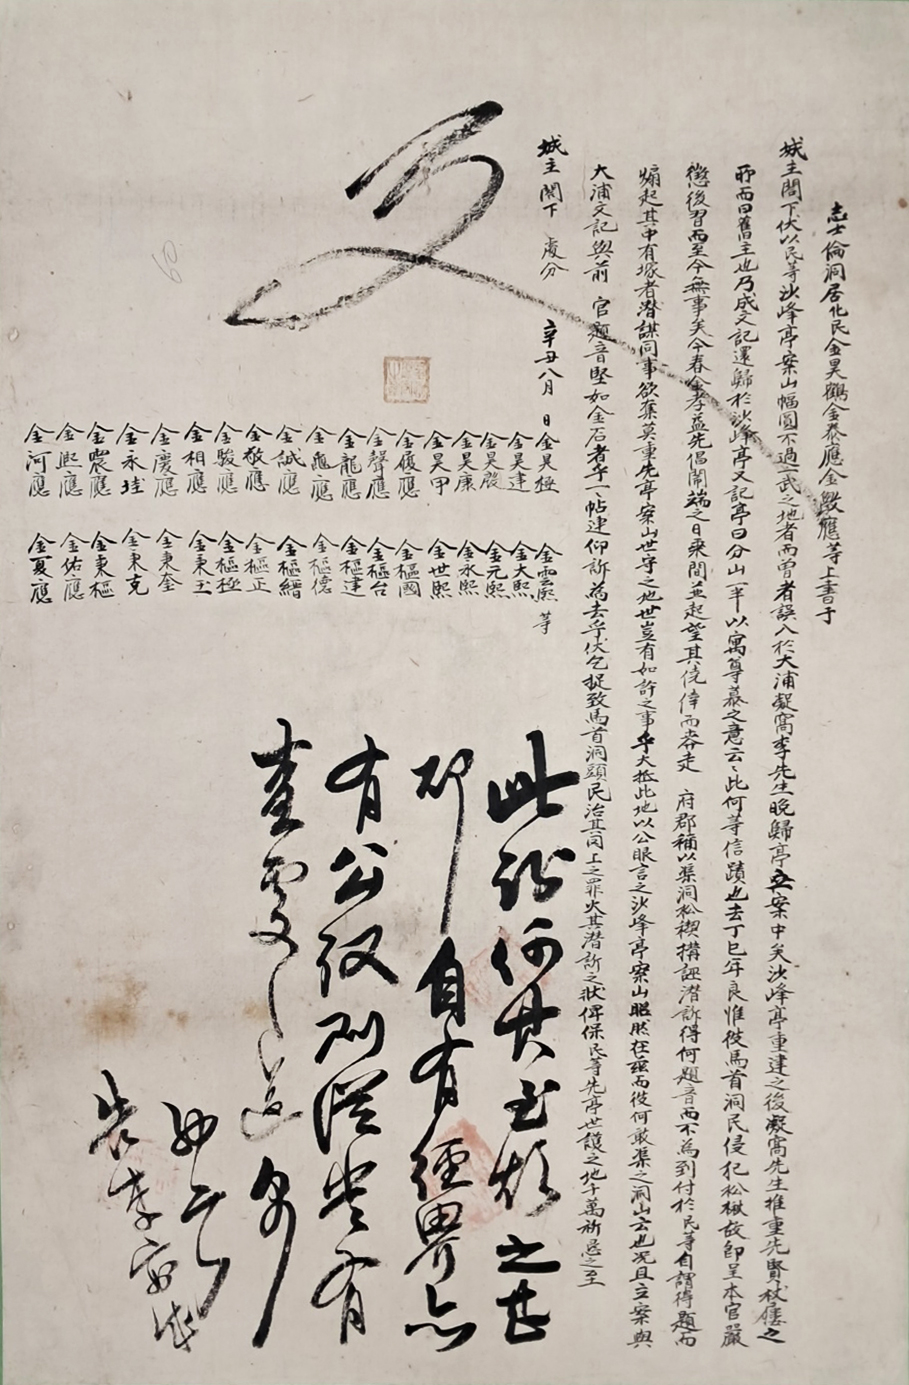 志士倫洞居化民金昊鶴金泰應金敎應等上書于
城主閤下伏以民等沙峰亭案山幅圓不過一武之地者而曾者誤入於大浦凝窩李先生晩歸亭立案中矣沙峰亭重建之後凝窩先生推重先賢杖屨之
所而曰舊主也乃成文記還歸於沙峰亭又記亭曰分山一半以寓尊慕之意云云此何等信蹟也去丁巳年良惟彼馬首洞民侵犯松楸故卽呈本官嚴
懲後習而至今無事矣今春金孝益先倡鬧端之日乘間並起望其僥倖而奔走 府郡稱以渠洞松楔搆誣潛訴得何題音而不爲到付於民等自謂得題而
煽起其中有塚者潛謀同事欲奪莫重先亭案山世守之地世豈有如許之事乎大抵此地以公眼言之沙峰亭案山昭然在玆而彼何敢渠之洞山云也况且立案與
大浦文記與前 官題音堅如金石者乎一一帖連仰訴爲去乎伏乞捉致馬首洞頭民治其罔上之罪火其潛訴之狀俾保民等先亭世護之地千萬祈懇之至
城主 閤下 處分 辛丑八月 日
金昊極 金昊建 金昊殷 金昊康 金昊甲 金履應 金聲應 金龍應 金龜應 金誠應 金敬應 金駿應 金相應 金慶應 金永珪 金震應 金熙應 金河應
金雲熙 金大熙 金元熙 金永熙 金世熙 金樞國 金樞台 金樞建 金樞德 金樞縉 金樞正 金樞極 金秉玉 金秉奎 金秉克 金秉樞 金佑應 金夏應 等
此訟何其至煩之甚
耶自有經界亦
有公议 則從當有
査處之道 向事